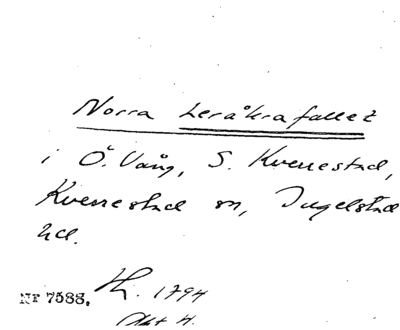 Norra Leråkra fallet
i Ö. Vång, S. Kverrestad,
Kverrestad sn, Ingelstad
hd.
Nr 7588. Lh. 1794
Akt 4.